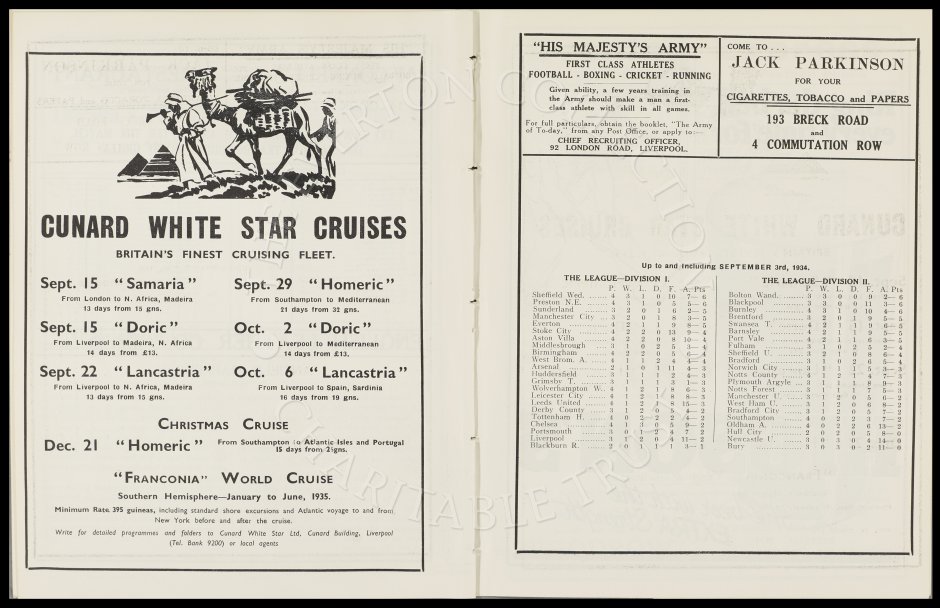 CUNARD WHITE STAR CRUISES
BRITAIN'S FINEST CRUISING FLEET.
Sept. 15 "Samaria"
From London to N. Africa, Madeira
13 days from 15 gns.
Sept. 29 "Homeric"
From Southampton to Mediterranean
21 days from 32 gns.
Sept. 15 "Doric"
From Liverpool to Madeira, N. Africa
14 days from £13.
Oct. 2 "Doric"
From Liverpool to Mediterranean
14 days from £13.
Sept. 22 "Lancastria"
From Liverpool to N. Africa, Madeira
13 days from 15 gns.
Oct. 6 "Lancastria"
From Liverpool to Spain, Sardinia
16 days from 19 gns.
CHRISTMAS CRUISE
Dec. 21 "Homeric" From Southampton to Atlantic Isles and Portugal
15 days from gns.
"FRANCONIA" WORLD CRUISE
Southern Hemisphere—January to June, 1935.
Minimum Rate 395 guineas, including standard shore excursions and Atlantic voyage to and from
New York before and after the cruise.
Write for detailed programmes and folders to Cunard White Star Ltd, Cunard Building, Liverpool
(Tel. Bank 9200) or local agents
"HIS MAJESTY'S ARMY"
FIRST CLASS ATHLETES
FOOTBALL - BOXING - CRICKET - RUNNING
Given ability, a few years training in
the Army should make a man a first-
class athlete with skill in all games.
For full particulars, obtain the booklet, "The Army
of To-day," from any Post Office, or apply to:—
CHIEF RECRUITING OFFICER,
92 LONDON ROAD, LIVERPOOL.
COME TO . . .
JACK PARKINSON
FOR YOUR
CIGARETTES, TOBACCO and PAPERS
193 BRECK ROAD
and
4 COMMUTATION ROW
Up to and including SEPTEMBER 3rd, 1934.
THE LEAGUE—DIVISION I.
P. W. L. D. F. A. Pts
Sheffield Wed. ...... 4 3 1 0 10 7— 6
Preston N.E. ...... 4 3 1 0 5 5— 6
Sunderland ...... 3 2 0 1 6 2— 5
Manchester City ... 3 2 0 1 8 3— 5
Everton ...... 4 2 1 1 9 8— 5
Stoke City ...... 4 2 2 0 13 9— 4
Aston Villa ...... 4 2 2 0 8 10— 4
Middlesbrough ...... 3 1 0 2 5 3— 4
Birmingham ...... 4 2 2 0 5 6— 4
West Brom. A. ...... 4 1 1 2 4 4— 4
Arsenal ...... 2 1 0 1 11 4— 3
Huddersfield ...... 3 1 1 1 2 4— 3
Grimsby T. ...... 3 1 1 1 3 1— 3
Wolverhampton W. .. 4 1 2 1 8 6— 3
Leicester City ...... 4 1 2 1 8 8— 3
Leeds United ...... 4 1 2 1 8 15— 3
Derby County ...... 3 1 2 0 5 4— 2
Tottenham H. ...... 4 0 2 2 2 4— 2
Chelsea ...... 4 1 3 0 5 9— 2
Portsmouth ...... 3 0 1 2 4 7— 2
Liverpool ...... 3 1 2 0 4 11— 2
Blackburn R. ...... 2 0 1 1 1 3— 1
THE LEAGUE—DIVISION II.
P. W. L. D. F. A. Pts
Bolton Wand. ...... 3 3 0 0 9 2— 6
Blackpool ...... 3 3 0 0 11 3— 6
Burnley ...... 4 3 1 0 10 4— 6
Brentford ...... 3 2 0 1 9 5— 5
Swansea T. ...... 4 2 1 1 9 6— 5
Barnsley ...... 4 2 1 1 9 5— 5
Port Vale ...... 4 2 1 1 6 3— 5
Fulham ...... 3 1 0 2 5 2— 4
Sheffield U. ...... 3 2 1 0 8 6— 4
Bradford ...... 3 1 0 2 6 5— 4
Norwich City ...... 3 1 1 1 5 3— 3
Notts County ...... 4 1 2 1 4 7— 3
Plymouth Argyle ... 3 1 1 1 8 9— 3
Notts Forest ...... 3 1 1 1 7 5— 3
Manchester U. ...... 3 1 2 0 5 6— 2
West Ham U. ...... 3 1 2 0 6 8— 2
Bradford City ...... 3 1 2 0 5 7— 2
Southampton ...... 4 0 2 2 3 7— 2
Oldham A. ...... 4 0 2 2 6 13— 2
Hull City ...... 2 0 2 0 5 8— 0
Newcastle U. ...... 3 0 3 0 4 14— 0
Bury ...... 3 0 3 0 2 11— 0
THE EVERTON COLLECTION
CHARITABLE TRUST